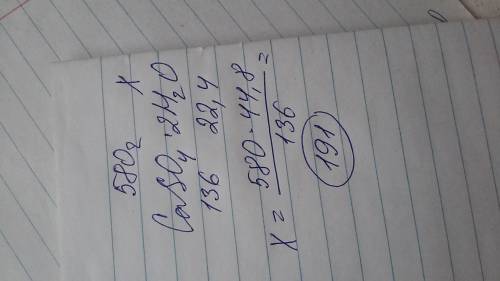 580г X
CaSO4·2H2O
136 22,4
X = 580·44,8 / 136 =
191